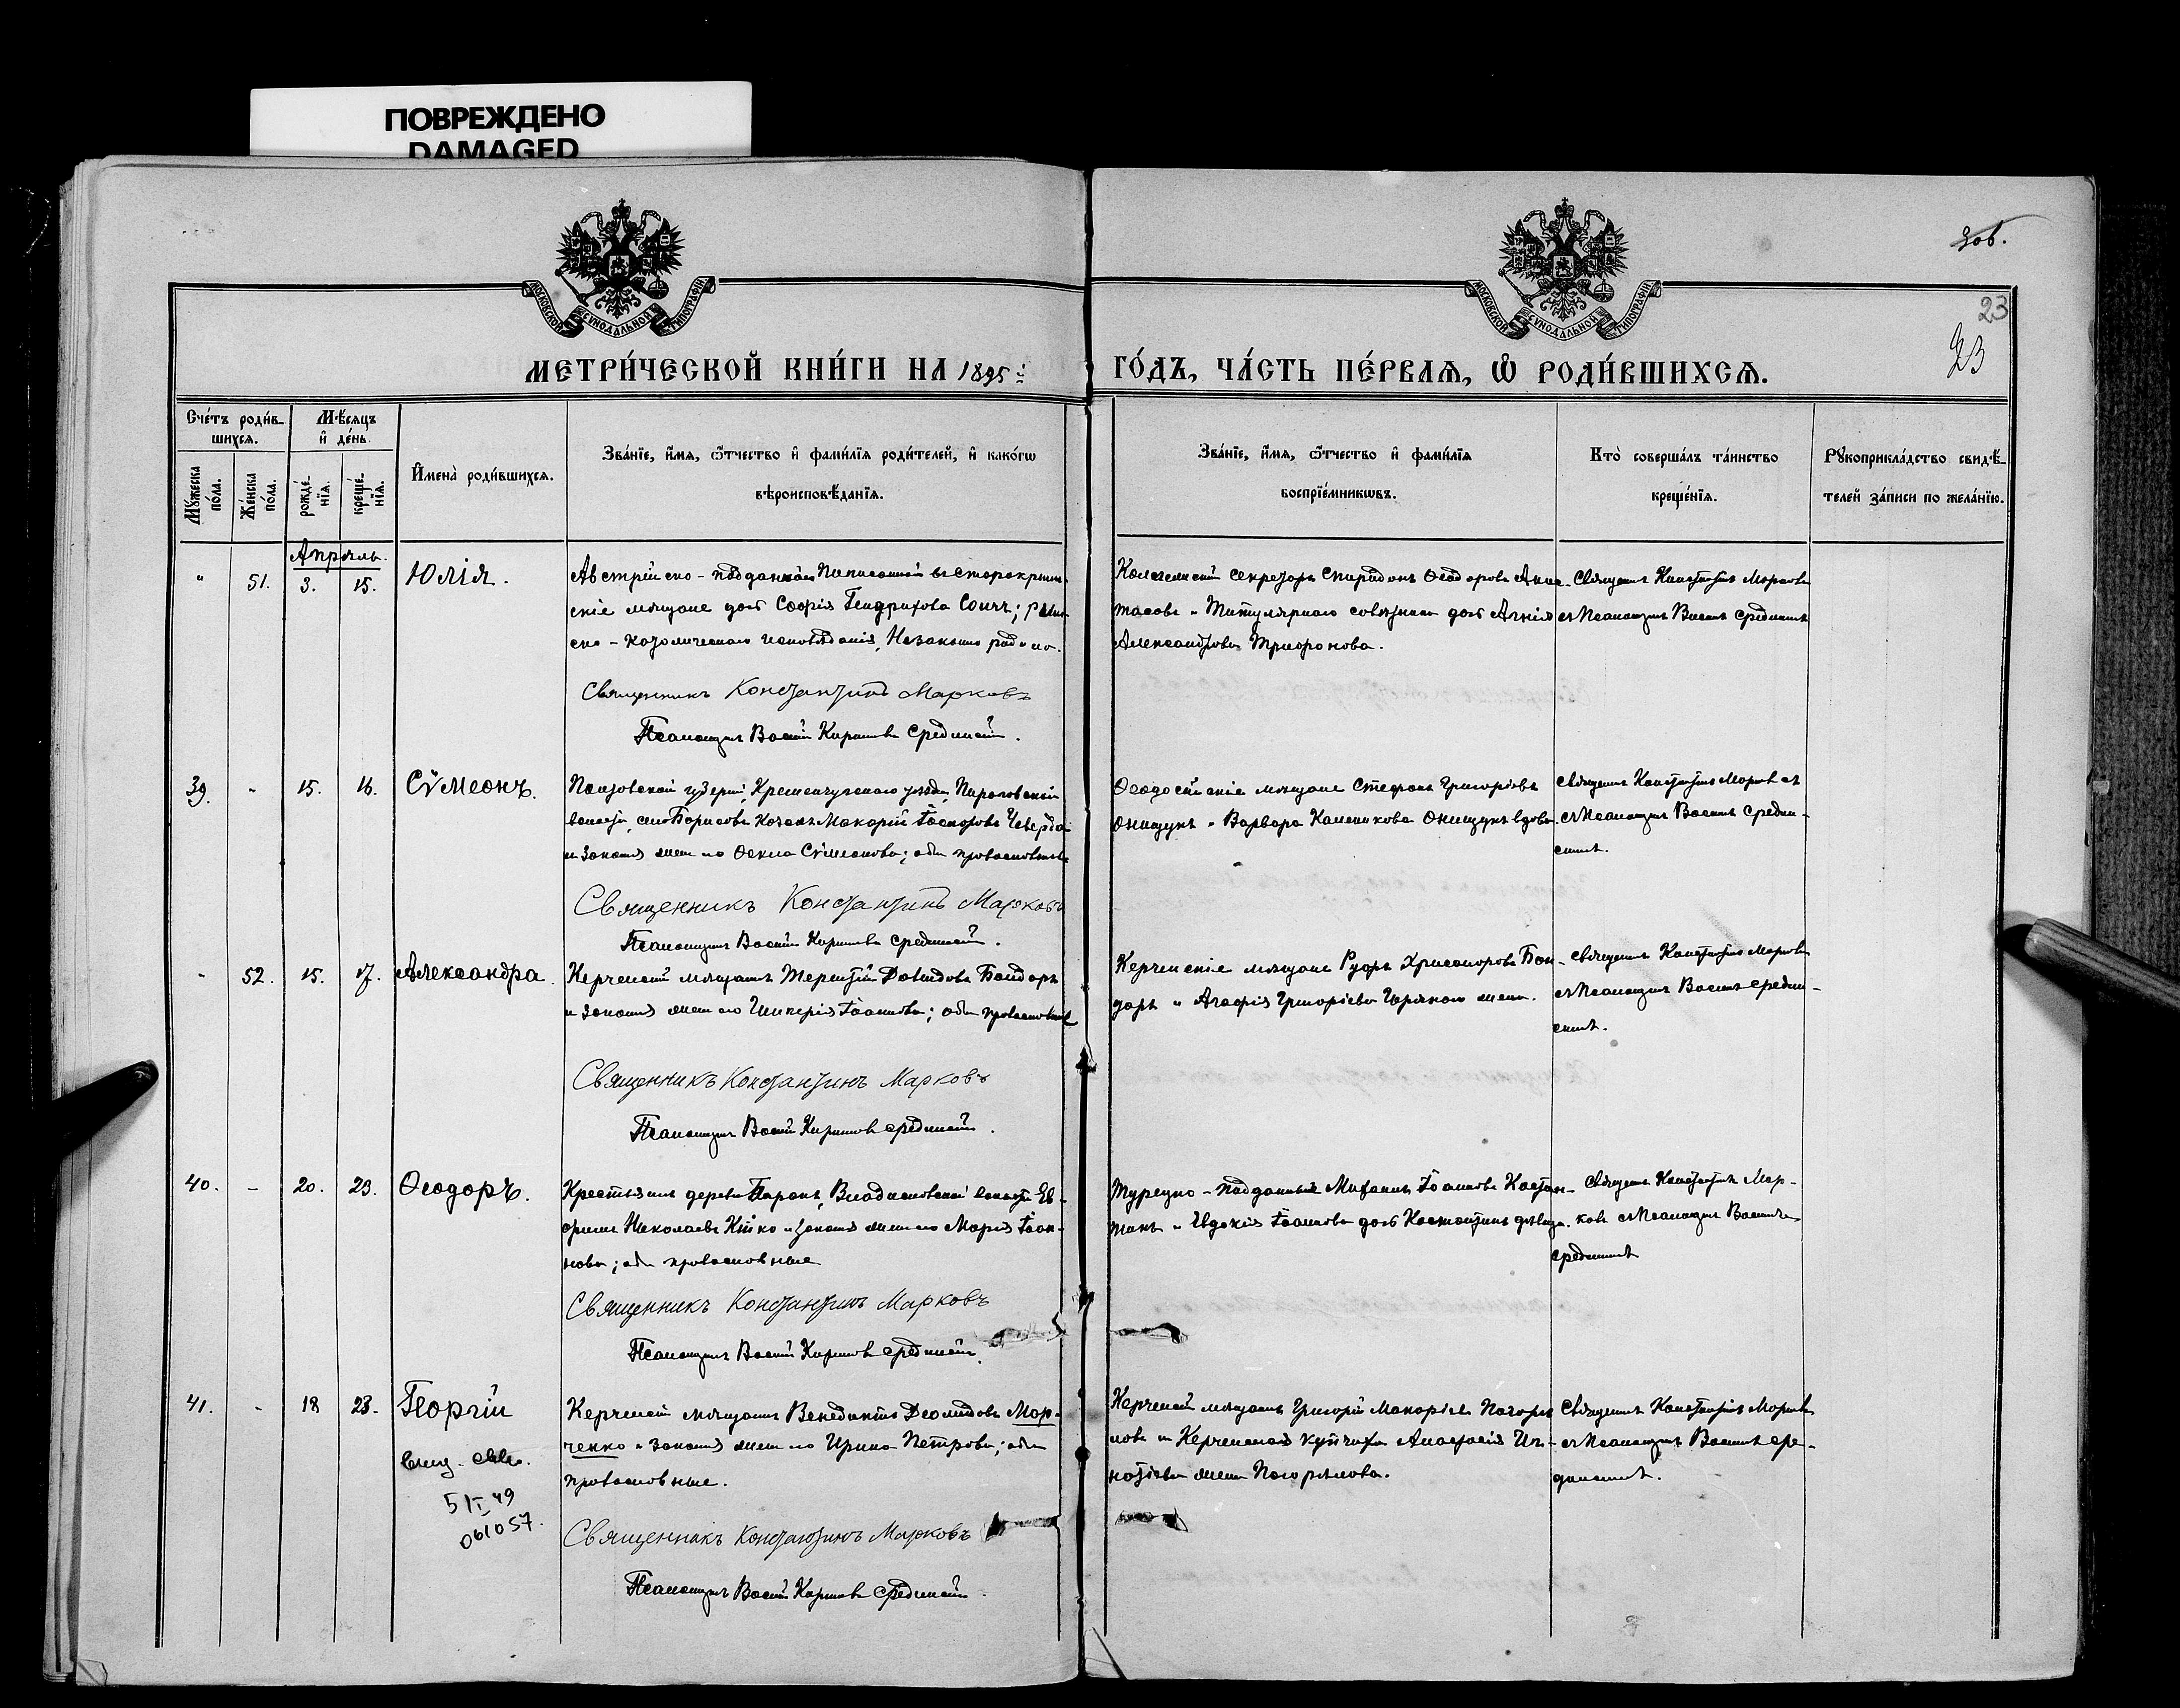 ПОВРЕЖДЕНО
DAMAGED
МОСКОВСКОЙ СѴНОДАЛЬНОЙ ТИПОГРАФІИ
МОСКОВСКОЙ СѴНОДАЛЬНОЙ ТИПОГРАФІИ
23
23
МЕТРИ́ЧЕСКОЙ КНИ́ГИ НА 1895 ГО́ДЪ, ЧА́СТЬ ПЕ́РВАѦ, Ѡ РОДИ́ВШИХСѦ.
Сче́тъ роди́в-
шихся.
Мѣ́сяцъ
и де́нь.
Му́жеска по́ла.
Же́нска по́ла.
рожде́-нїя.
креще́-нїя.
И́мена̀ роди́вшихся.
Зва́нїе, и́мя, ѻ́тчество и фами́лїя роди́телей, и како́гѡ
вѣроисповѣ́данїя.
Зва́нїе, и́мя, ѻ́тчество и фами́лїя
воспрїе́мникѡвъ.
Кто̀ соверша́лъ та́инство
креще́нїя.
Рукоприкла́дство свидѣ́-
телей за́писи по жела́нїю.
Апрѣль.
" 51. 3. 15. Юлія.
Австрійско-подданной
скіе мѣщане дочь Софія Гендрихова ; римс
ско-католическаго исповѣданія, Незаконно
Священникъ Константинъ Марковъ
Псаломщикъ Василій Кирилловъ Срединскій.
Коллежскій секретарь Спиридонъ Ѳеодоровъ Анас-
тасовъ и Титулярнаго совѣтника дочь Агнія
Александрова Трифонова.
Священникъ Константинъ Марковъ
съ Псаломщикомъ Василіемъ Срединскимъ
39. " 15. 16. Сѵмеонъ.
Полтавской губерніи, Кременчугскаго уѣзда, Пироговской
волости, село Борисовъ Козакъ Макарій
и законная жена его Ѳекла Сѵмеонова; оба православные
Священникъ Константинъ Марковъ
Псаломщикъ Василій Кирилловъ Срединскій.
Ѳеодосійскіе мѣщане Стефанъ Григоріевъ
Онищукъ и Варвара Онищукъ вдова.
Священникъ Константинъ Марковъ
съ Псаломщикомъ Василіемъ Средин-
скимъ.
" 52. 15. 17. Александра.
Керченскій мѣщанинъ Терентій Давидовъ Бондарь
и законная жена его Гликерія Іоаннова; оба православные
Священникъ Константинъ Марковъ
Псаломщикъ Василій Кирилловъ Срединскій.
Керченскіе мѣщане Бон-
дарь и Агафія Григорьева жена.
Священникъ Константинъ Марковъ
съ Псаломщикомъ Василіемъ Средин-
скимъ.
40. – 20. 23. Ѳеодоръ.
Крестьянинъ деревни Владиславовской волости Ев-
фимъ Николаевъ и законная жена его Марія Іоан-
нова; оба православные
Священникъ Константинъ Марковъ
Псаломщикъ Василій Кирилловъ Срединскій.
Турецко-подданные Михаилъ Іоанновъ Костан-
тинъ и Евдокія Іоаннова дочь Костантинъ дѣвица.
Священникъ Константинъ Мар-
ковъ съ Псаломщикомъ Василіемъ
Срединскимъ
41. " 18 23. Георгій
5 I 49
061057.
Керченскій мѣщанинъ Венедиктъ Леонидовъ Мар-
ченко и законная жена его Ирина Петрова; оба
православные.
Священникъ Константинъ Марковъ
Псаломщикъ Василій Кирилловъ Срединскій.
Керченскій мѣщанинъ Григорій Макаріевъ Погорѣ-
ловъ и Керченская купчиха Анастасія Иг-
натіева жена Погорѣлова.
Священникъ Константинъ Марковъ
съ Псаломщикомъ Василіемъ Сре-
динскимъ.